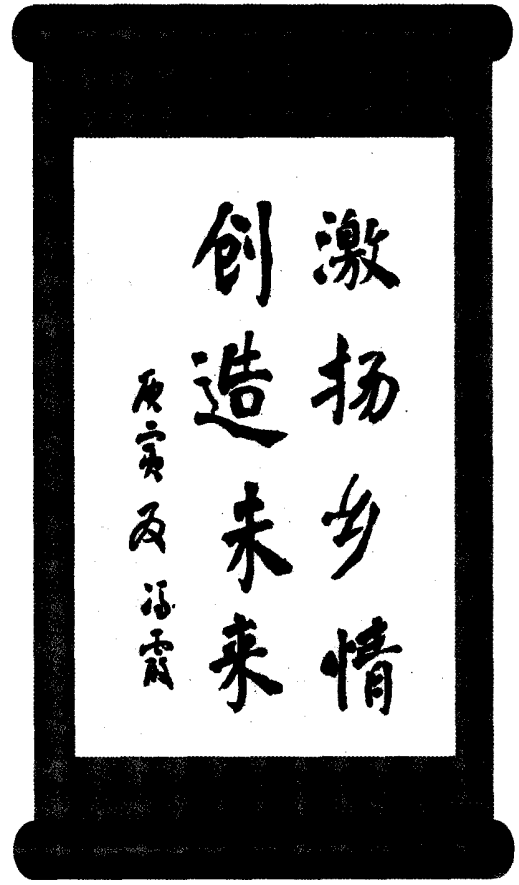 激扬乡情
创造未来
庚寅夏 冯霞